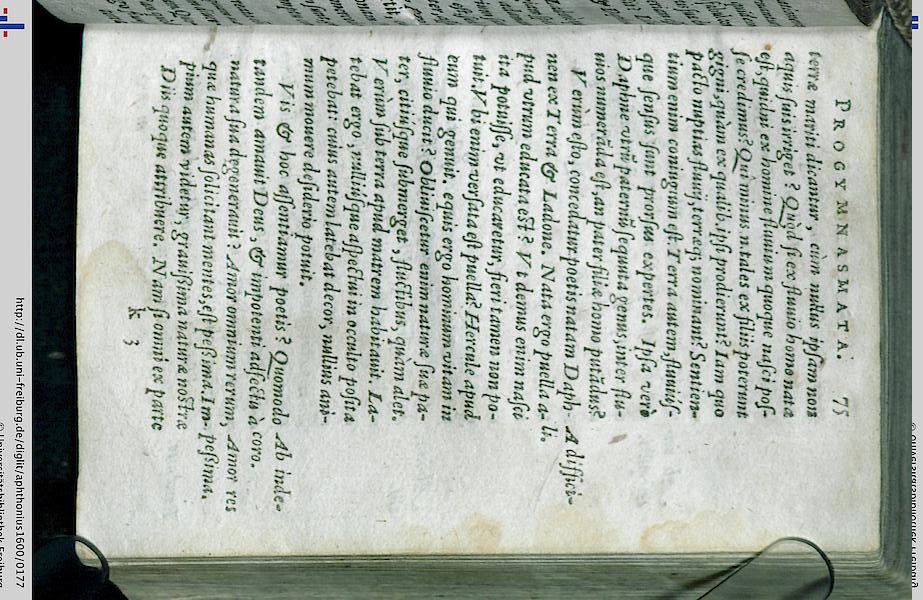 PROGYMNASMATA. 75
terræ mariti dicantur, cum nullus ipsam non
aquis suis iriget? Quòd si ex fluuio homo nata
est, quidni ex homine fluuium quoque nasci pos-
se credimus? Qui minus natales ex filiis poterunt
gigni, quàm ex qualib. ipsi prodierunt? Iam quo
pacto nuptias fluuij, terræq; nominant? Sentien-
tium enim coniugium est. Terra autem, fluuius-
que sensus sunt prorsus expertes. Ipsa verò
Daphne vtrũ paternũ sequuta genus, inter flu-
uios numerãda est, an pater filiæ homo putãdus?
Verum esto, concedatur poetis natam Daph-
nen ex Terra & Ladone. Nata ergo puella a-
pud vtrum educata est? Vt demus enim nasci
ita potuisse, vt educaretur, fieri tamen non po-
tuit. Vbi enim versata est puella? Hercule apud
eum qui genuit. equis ergo hominum vitam in
fluuio ducit? Obliuiscetur enim naturæ suæ pa-
ter, citiusque submerget, fluctibus, quàm alet.
Verùm sub terra apud matrem habitauit. La-
tebat ergo, nulliusque aspectui in oculto posita
petebat: cuius autem latebat decor, nullius ani-
mum mouere desiderio potuit.
Vis & hoc assentiamur poetis? Quomodo
tandem amauit Deus, & impotenti adfectu à
natura sua degenerauit? Amor omnium rerum,
quæ humanas solicitant mentes, est pessima. Im-
pium autem videtur, grauissima naturæ nostræ
Diis quoque attribuere. Nam si omni ex parte
k 3
A diffici-
li.
Ab inde-
coro.
Amor res
pessima.
http://dl.ub.uni-freiburg.de/diglit/aphthonius1600/0177
© Universitätsbibliothek Freiburg